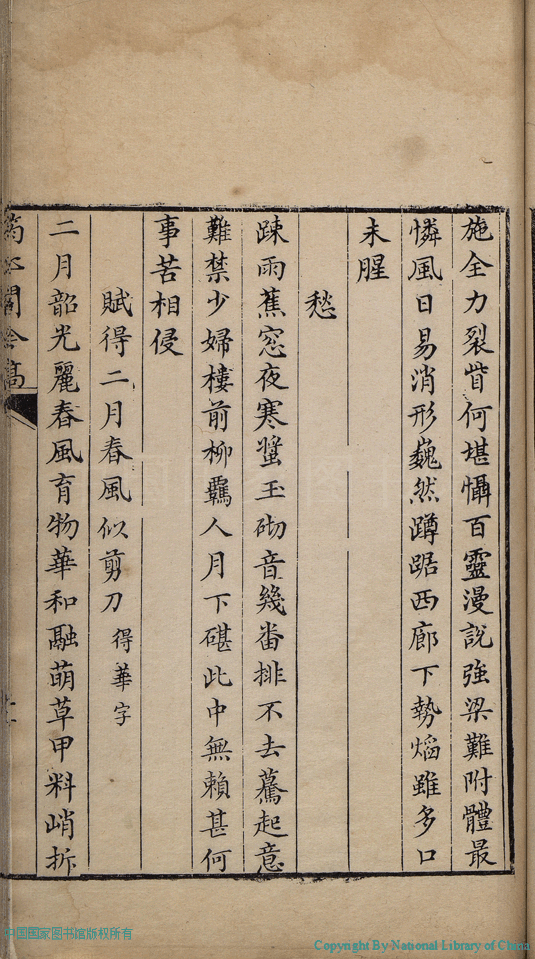 施全力裂眥何堪懾百靈漫說強梁難附體最
憐風日易消形巍然蹲踞西廊下勢熖雖多口
未腥
愁
踈雨蕉窓夜寒螀玉砌音幾畨排不去驀起意
難禁少婦樓前柳羈人月下碪此中無賴甚何
事苦相侵
賦得二月春風似剪刀 得華字
二月韶光麗春風育物華和融萌草甲料峭拆
閣吟稿
中国国家图书馆版权所有
Copyright By National Library of China